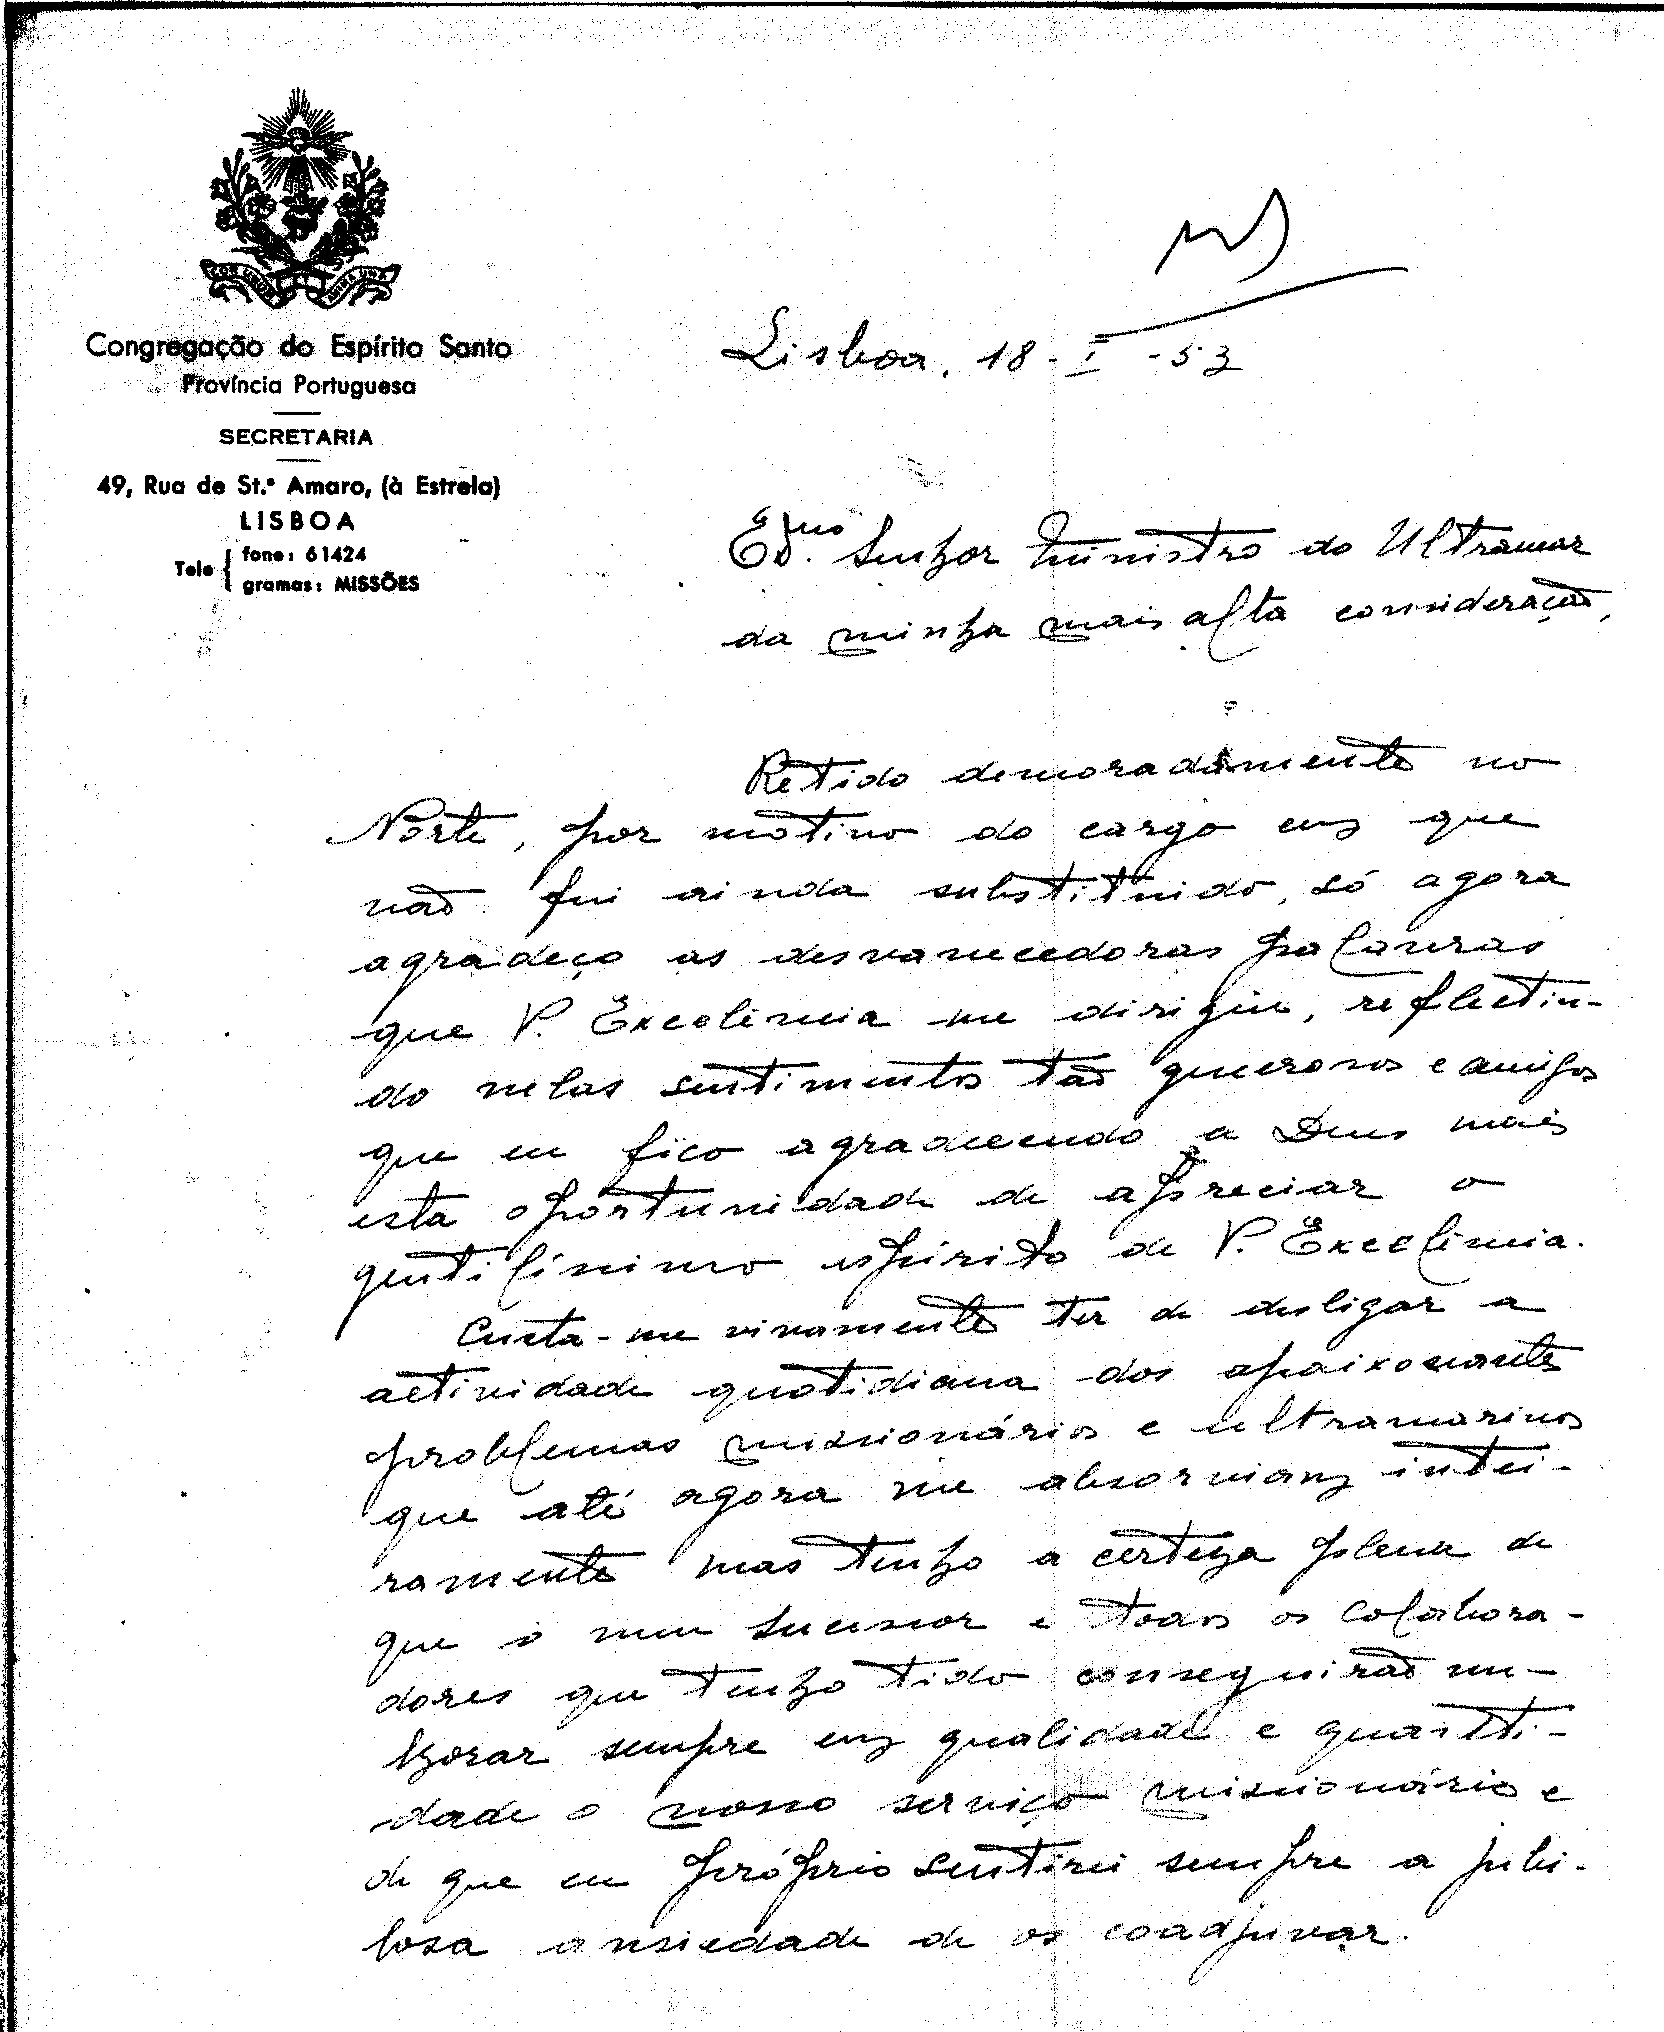 Congregação do Espírito Santo
Província Portuguesa
SECRETARIA
49, Rua de St.º Amaro, (à Estrela)
LISBOA
Tele { fone: 61424
gramas: MISSÕES
Lisboa, 18-I-53
Ex.mo Senhor Ministro do Ultramar
da minha mais alta consideração,
Retido demoradamente no
Norte, por motivo do cargo em que
não fui ainda substituido, só agora
agradeço as desvanecedoras palavras
que V. Excelência me dirigiu, reflectin-
do nelas sentimentos tão generosos e amigos
que eu fico agradecendo a Deus mais
esta oportunidade de apreciar o
gentilíssimo espírito de V. Excelência.
Custa-me vivamente ter de desligar a
actividade quotidiana dos apaixonantes
problemas missionários e ultramarinos
que até agora me absorviam intei-
ramente mas tenho a certeza plena de
que o meu sucessor e todos os colabora-
dores que tenho tido conseguirão me-
lhorar sempre em qualidade e quanti-
dade o nosso serviço missionário e
de que eu próprio sentirei sempre a jubi-
losa ansiedade de os coadjuvar.